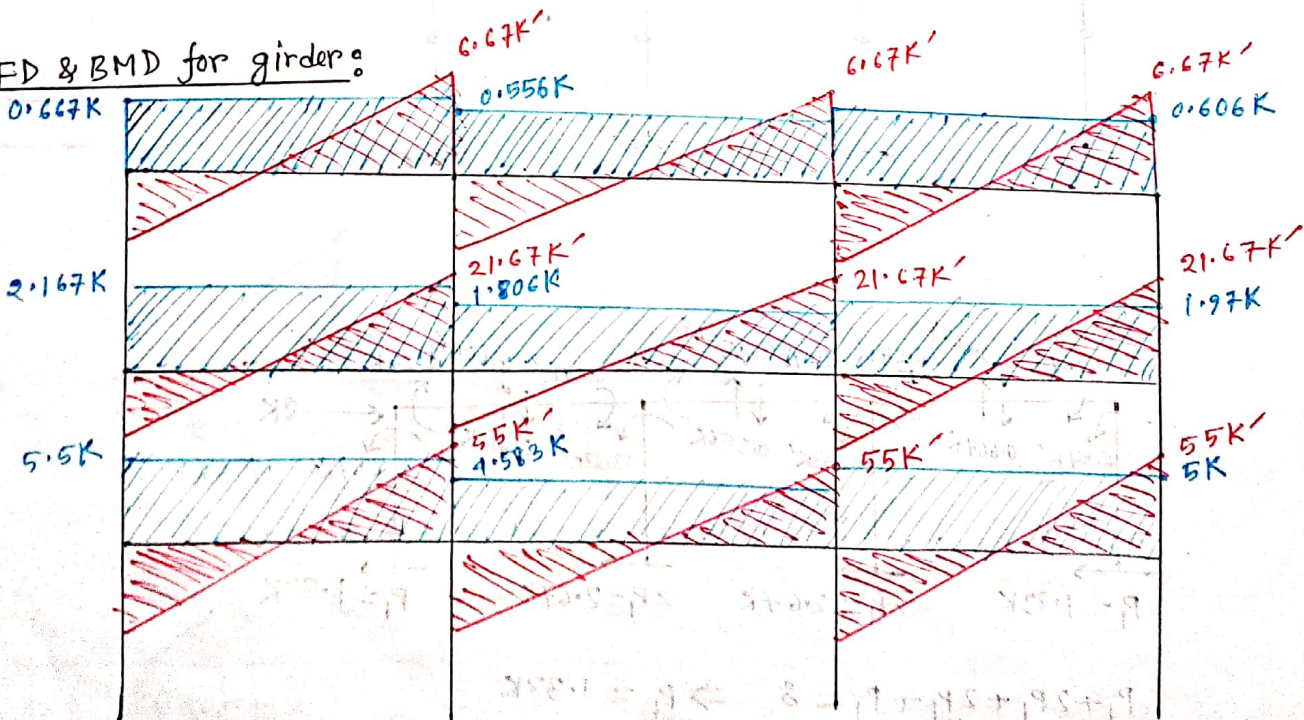 FD & BMD for girder:
6.67K'
6.67K'
6.67K'
0.667K
0.556K
0.606K
21.67K'
21.67K'
21.67K'
2.167K
1.806K
1.97K
55K'
55K'
55K'
5.5K
4.583K
5K